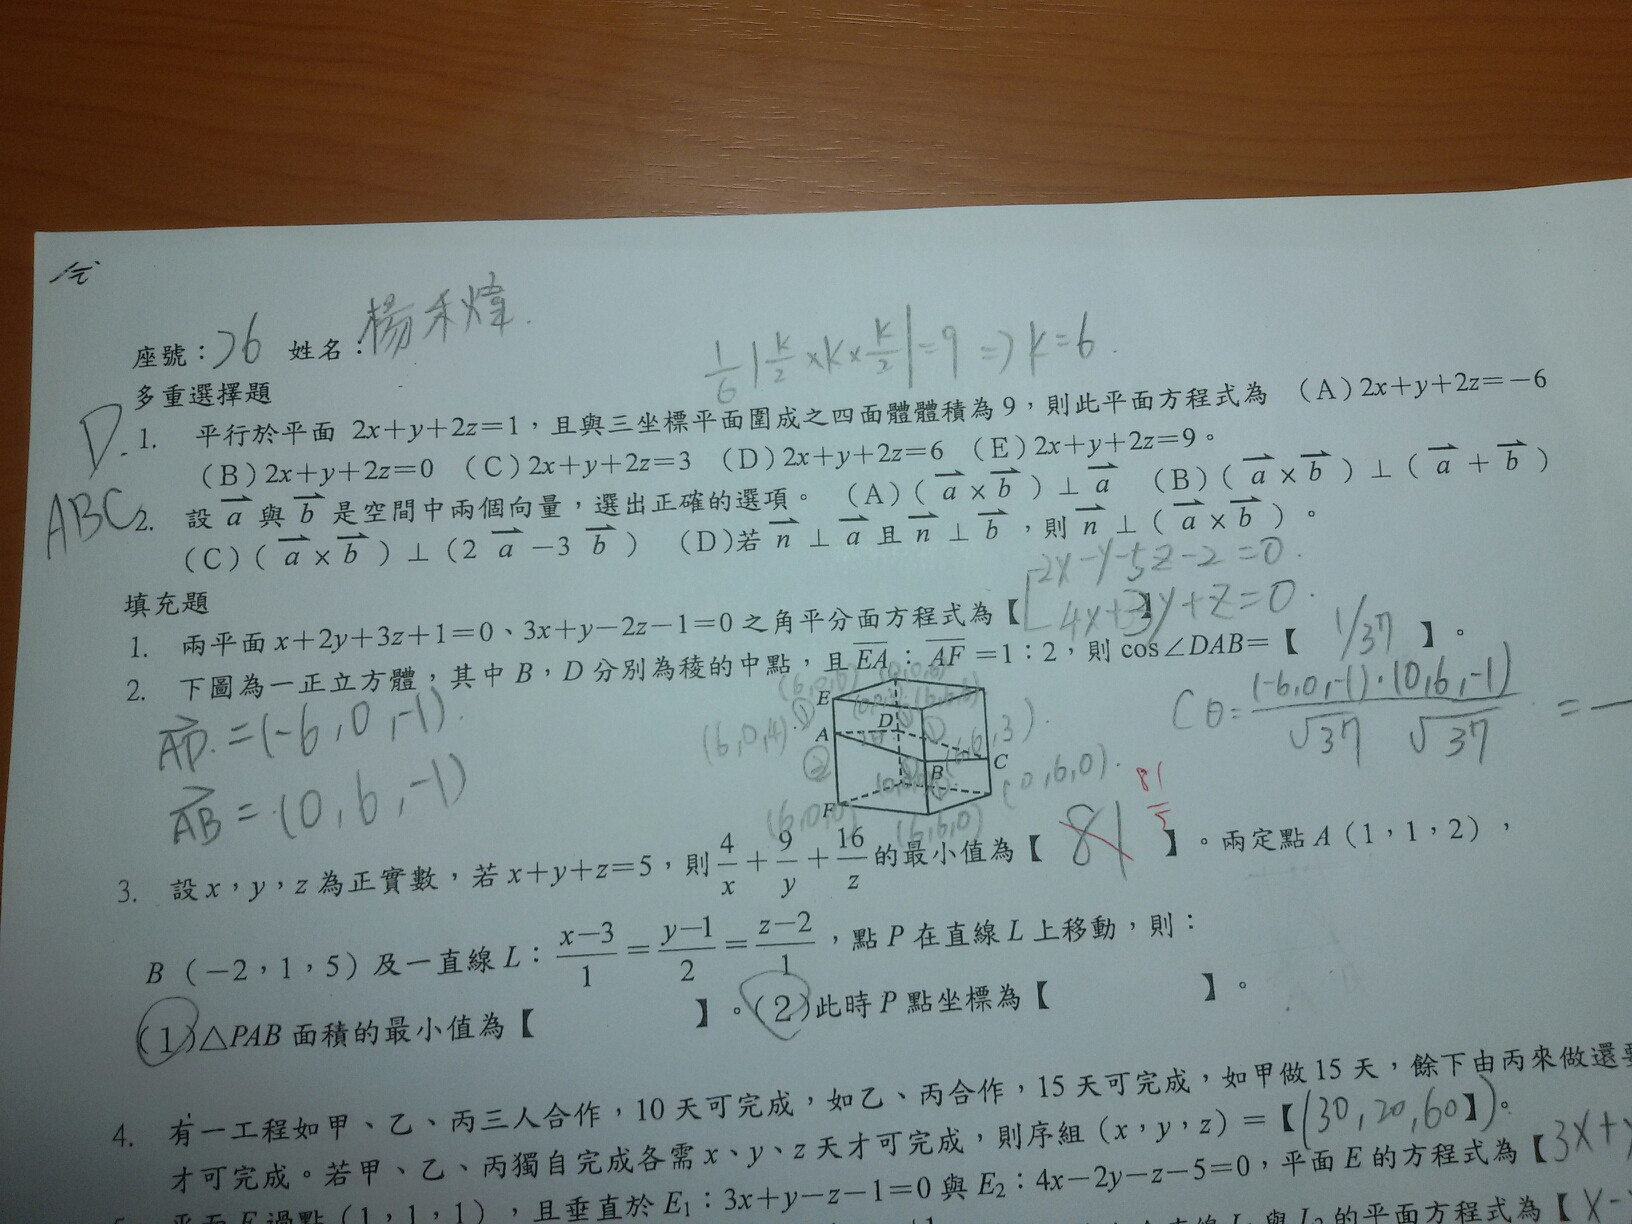 座號：26 姓名：楊禾煒
1/6|k/2×k×k/2|=9 ⇒ k=6
多重選擇題
D. 1. 平行於平面 2x+y+2z=1，且與三坐標平面圍成之四面體體積為9，則此平面方程式為 (A)2x+y+2z=-6
(B)2x+y+2z=0 (C)2x+y+2z=3 (D)2x+y+2z=6 (E)2x+y+2z=9。
ABC 2. 設 a⃗ 與 b⃗ 是空間中兩個向量，選出正確的選項。 (A)(a⃗×b⃗)⊥a⃗ (B)(a⃗×b⃗)⊥(a⃗+b⃗)
(C)(a⃗×b⃗)⊥(2a⃗-3b⃗) (D)若 n⃗⊥a⃗ 且 n⃗⊥b⃗，則 n⃗⊥(a⃗×b⃗)。
填充題
2x-y-5z-2=0
1. 兩平面 x+2y+3z+1=0、3x+y-2z-1=0 之角平分面方程式為【 4x+3y+z=0 】。
2. 下圖為一正立方體，其中 B，D 分別為稜的中點，且 EA：AF=1：2，則 cos∠DAB=【 1/37 】。
AD⃗=(-6,0,-1)
AB⃗=(0,6,-1)
E
D
A
B
C
F
(6,0,4)
(6,6,3)
(0,6,0)
(6,0,0)
(6,6,0)
Cθ=(-6,0,-1)·(0,6,-1)/√37 √37 =
3. 設 x，y，z 為正實數，若 x+y+z=5，則 4/x+9/y+16/z 的最小值為【 81 81/5 】。兩定點 A(1，1，2)，
B(-2，1，5)及一直線 L：x-3/1=y-1/2=z-2/1，點 P 在直線 L 上移動，則：
(1)△PAB 面積的最小值為【 】。(2)此時 P 點坐標為【 】。
4. 有一工程如甲、乙、丙三人合作，10 天可完成，如乙、丙合作，15 天可完成，如甲做 15 天，餘下由丙來做還要
才可完成。若甲、乙、丙獨自完成各需 x、y、z 天才可完成，則序組(x，y，z)=【(30,20,60)】。
5. 平面 E 過點(1，1，1)，且垂直於 E₁：3x+y-z-1=0 與 E₂：4x-2y-z-5=0，平面 E 的方程式為【3x+y
與 L₂ 的平面方程式為【x-